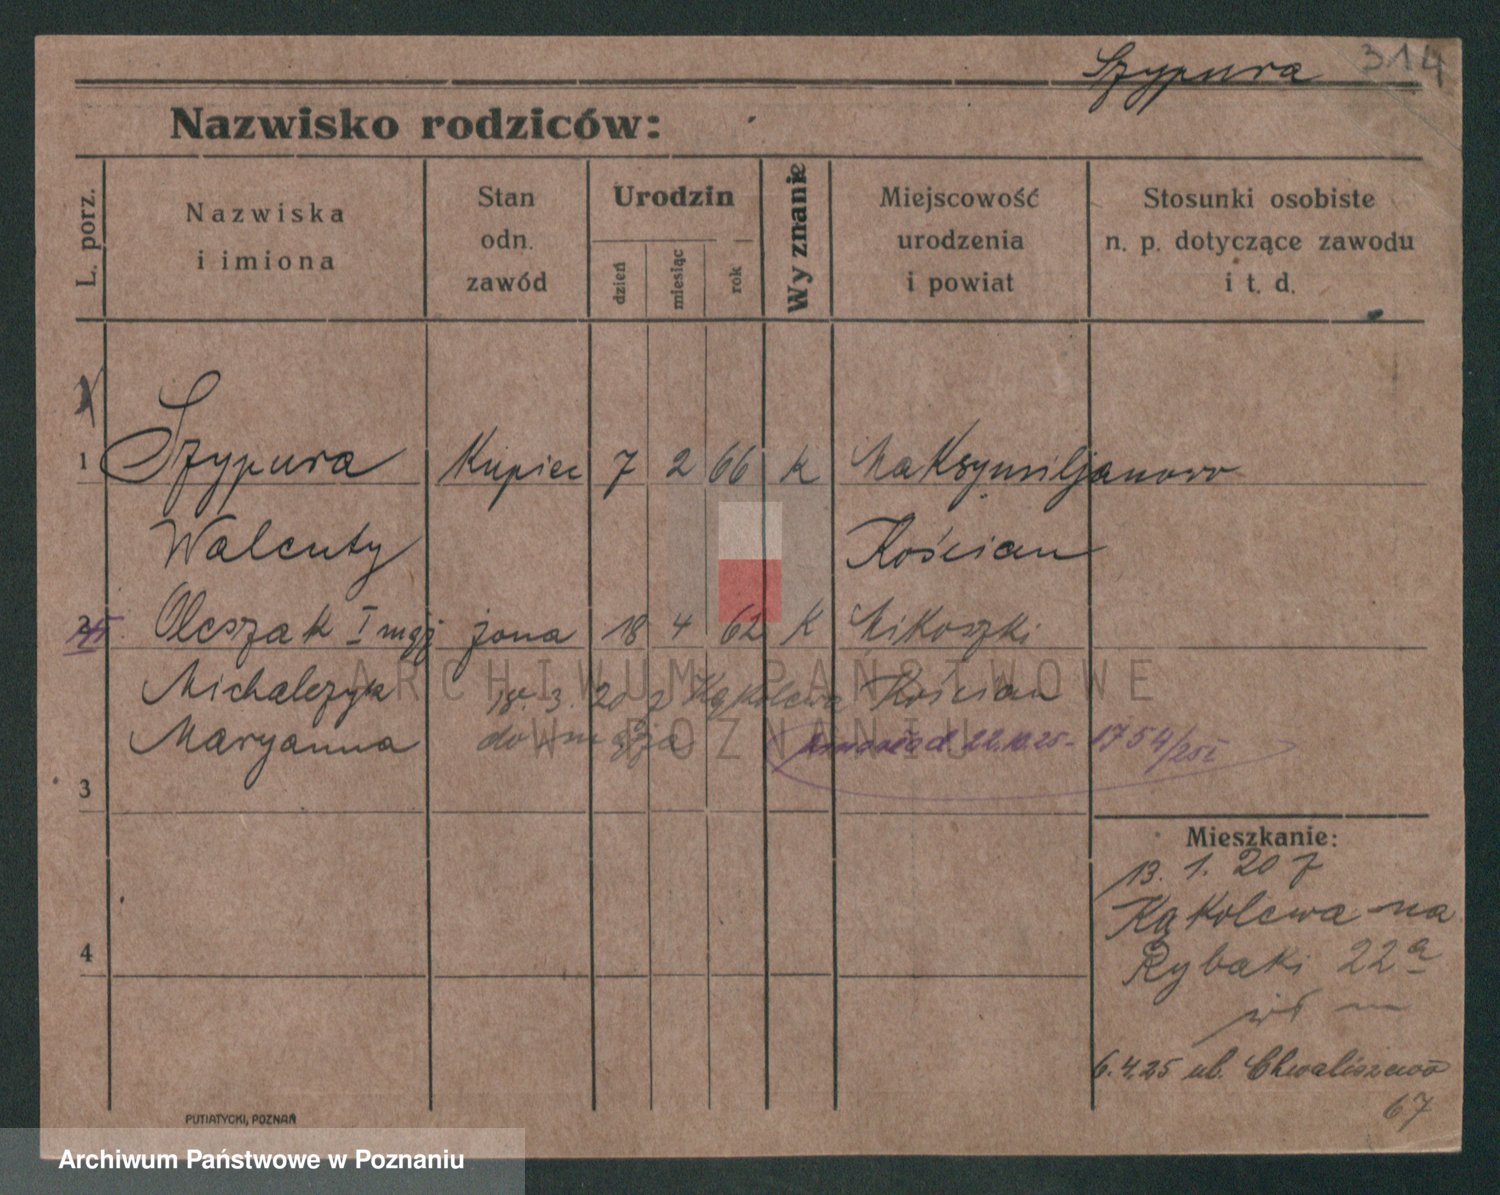 Szypura 314
Nazwisko rodziców:
L. porz.
Nazwiska
i imiona
Stan
odn.
zawód
Urodzin
dzień
miesiąc
rok
Wyznanie
Miejscowość
urodzenia
i powiat
Stosunki osobiste
n. p. dotyczące zawodu
i t. d.
1 Szypura Kupiec 7 2 66 K Maksymiljanowo
Walenty Kościan
2 Oleszak I mąż żona 18 4 62 K Mikoszki
Michalczyk 18. 3. 20 z Kąkolewa Kościan
Maryanna do męża
22.10.25 - 1754/25
3
Mieszkanie:
13. 1. 20 z
Kąkolewa na
Rybaki 22a
4
6.4.25 ul. Chwaliszewo
67
PUTIATYCKI, POZNAŃ
ARCHIWUM PAŃSTWOWE
W POZNANIU
Archiwum Państwowe w Poznaniu